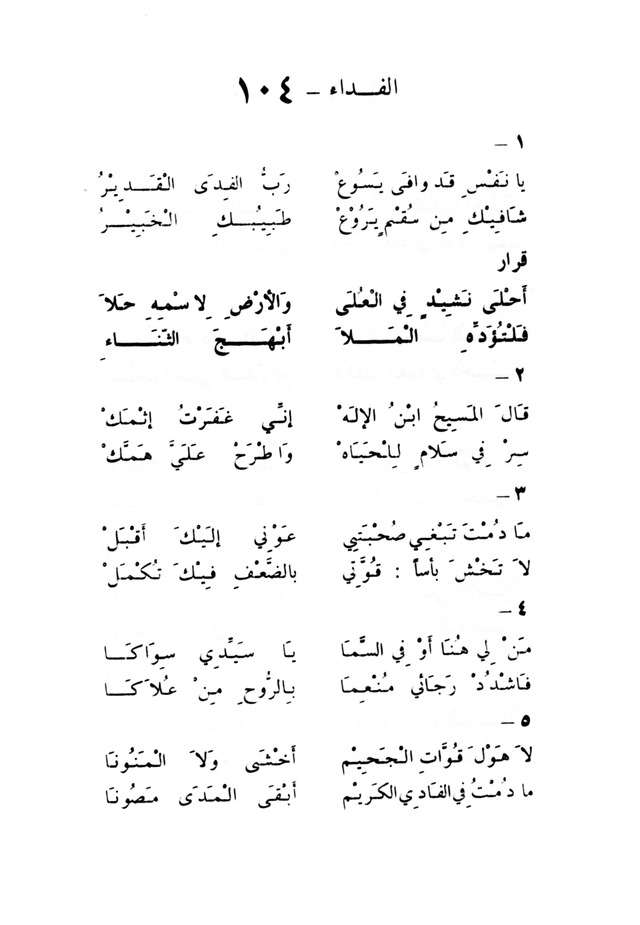 الفـــداء – ١٠٤
١ –
يا نَفْسِ قَد وافَى يَسُوعْ رَبُّ الفِدَى الْقَـــدِيْرْ
شَافِيْكِ مِن سُقْمٍ يَرُوْعْ طَبِيْبُـــكِ الْخَبِيْـــرْ
قرار
أَحْلَى نَشِيْدٍ فِي الْعُلَى وَالأرْضِ لِاسْمِهِ حَلاَ
فَلْتُؤَدِّهِ الْمَـــلاَ أَبْهَـــجَ الثَّنَـــاءِ
٢ –
قَالَ المَسيحُ ابْنُ الإلهْ إنِّي غَفَرْتُ إثْمَكْ
سِرْ فِي سَلامٍ لِلْحَيَاهْ وَاطْرَحْ عَلَيَّ هَمَّكْ
٣ –
مَا دُمْتَ تَبْغِي صُحْبَتِي عَوْنِي إلَيْكَ أَقْبَلْ
لاَ تَخْشَ بَأساً : قُوَّتِي بالضَّعْفِ فِيْكَ تُكْمَلْ
٤ –
مَنْ لِي هُنَا أَوْ فِي السَّمَا يَا سَيِّدِي سِوَاكَـــا
فَاشْدُدْ رَجَائِي مُنْعِمَا بِالرُّوحِ مِنْ عُلاَكَـــا
٥ –
لاَ هَوْلَ قُوَّاتِ الْجَحِيْمْ أَخْشَى وَلاَ الْمَنُونَا
ما دُمْتُ فِي الفَادِي الكَرِيْمْ أَبْقَى الْمَدَى مَصُونَا